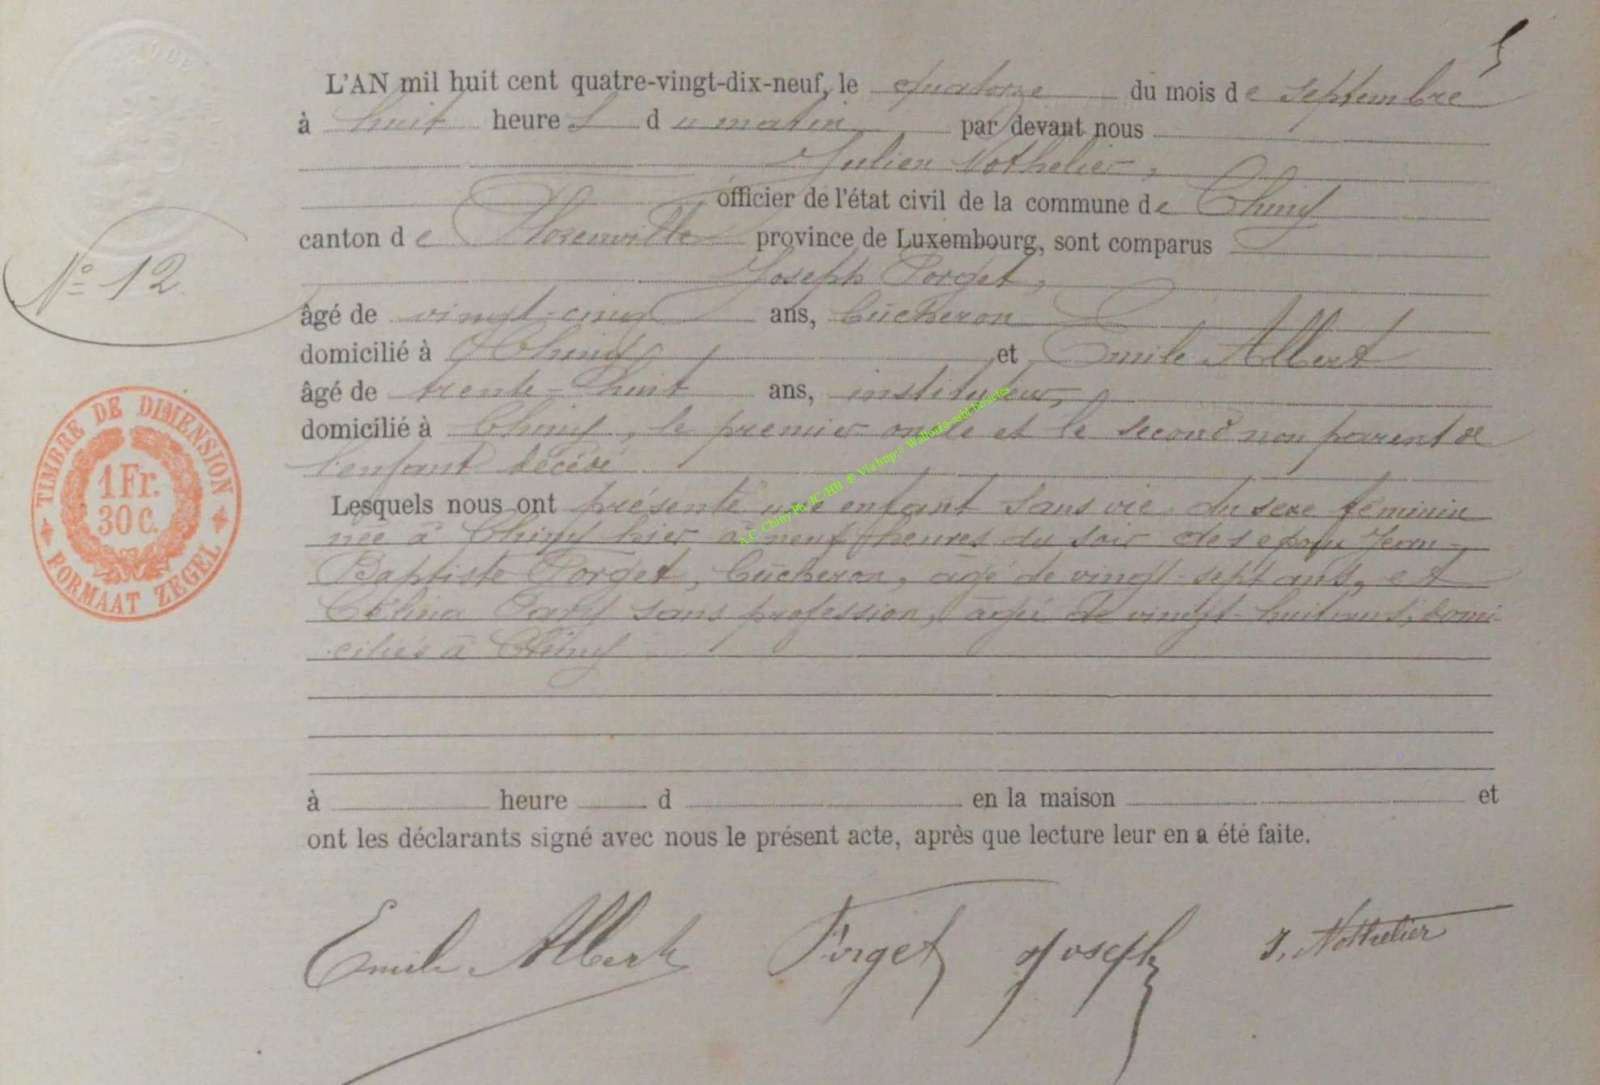 5
L'AN mil huit cent quatre-vingt-dix-neuf, le quatorze du mois de septembre
à huit heures du matin par devant nous
Julien Nothelier,
officier de l'état civil de la commune de Chiny
canton de Florenville province de Luxembourg, sont comparus
Joseph Forget,
âgé de vingt-cinq ans, bûcheron
domicilié à Chiny et Emile Albert
âgé de trente-huit ans, instituteur,
domicilié à Chiny, le premier oncle et le second non parent de
l'enfant décédé
Lesquels nous ont présenté une enfant sans vie du sexe féminin
née à Chiny hier à neuf heures du soir des époux Jean-
Baptiste Forget, bûcheron, âgé de vingt-sept ans, et
Célina sans profession, âgée de vingt-huit ans, domi-
ciliés à Chiny
à heure d en la maison et
ont les déclarants signé avec nous le présent acte, après que lecture leur en a été faite.
Emile Albert Forget Joseph J. Nothelier
N° 12
TIMBRE DE DIMENSION
1 Fr.
30 C.
FORMAAT ZEGEL